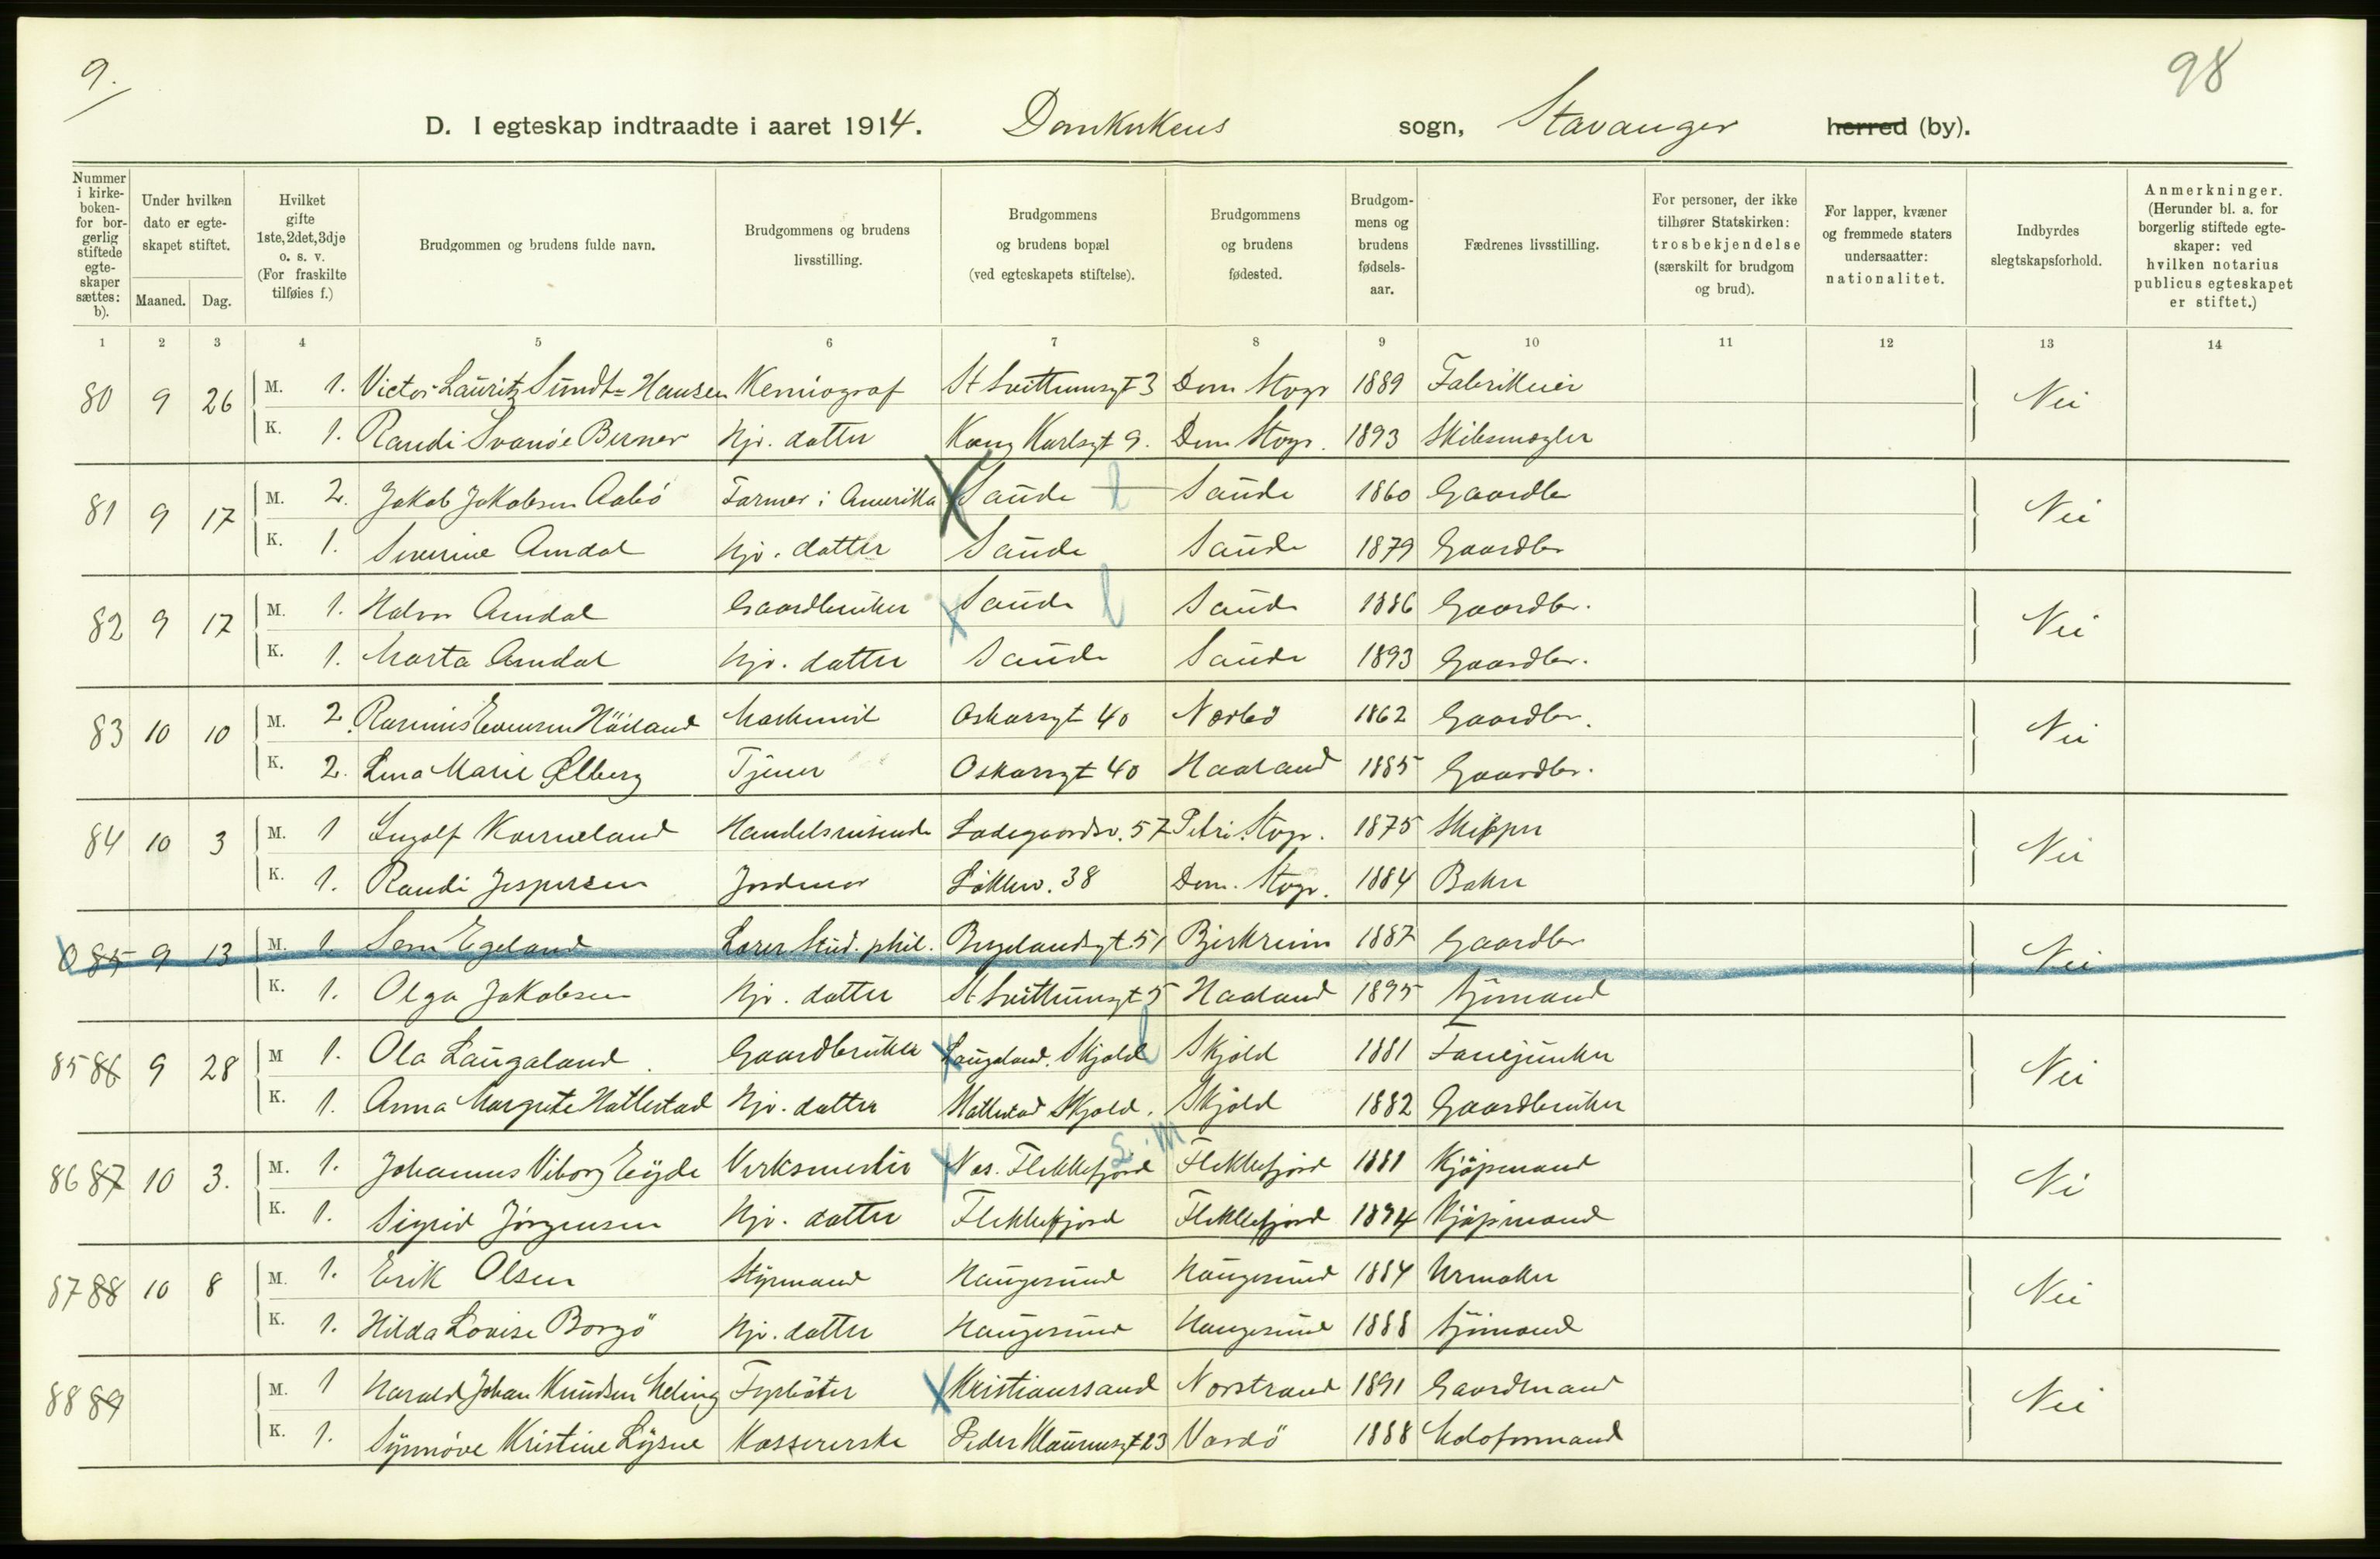 9.
98
D. I egteskap indtraadte i aaret 1914. Domkirkens sogn, Stavanger herred (by).
Nummer i kirke-boken- for bor-gerlig stiftede egte-skaper sættes: b).
Under hvilken dato er egte-skapet stiftet.
Maaned. Dag.
Hvilket gifte 1ste, 2det, 3dje o. s. v. (For fraskilte tilføies f.)
Brudgommen og brudens fulde navn.
Brudgommens og brudens livsstilling.
Brudgommens og brudens bopæl (ved egteskapets stiftelse).
Brudgommens og brudens fødested.
Brudgom-mens og brudens fødsels-aar.
Fædrenes livsstilling.
For personer, der ikke tilhører Statskirken: trosbekjendelse (særskilt for brudgom og brud).
For lapper, kvæner og fremmede staters undersaatter: nationalitet.
Indbyrdes slegtskapsforhold.
Anmerkninger. (Herunder bl. a. for borgerlig stiftede egte-skaper: ved hvilken notarius publicus egteskapet er stiftet.)
1 2 3 4 5 6 7 8 9 10 11 12 13 14
80 9 26 M. 1. Victor Lauritz Sundt-Hansen Kemigraf St Svithunsgt 3 Dom Stvgr 1889 Fabrikeier Nei
K. 1. Randi Svanøe Berner Hjv. datter Kong Karlsgt 9. Dom Stvgr. 1893 Skibsmægler
81 9 17 M. 2. Jakob Jakobsen Aabø Farmer i Amerika Saude Saude 1860 Gaardbr Nei
K. 1. Severine Amdal Hjv. datter Saude Saude 1879 Gaardbr
82 9 17 M. 1. Halvor Amdal Gaardbruker Saude Saude 1886 Gaardbr. Nei
K. 1. Marta Amdal Hjv. datter Saude Saude 1893 Gaardbr.
83 10 10 M. 2. Rasmus Evensen Höiland Maskinist Oskarsgt 40 Nærbø 1862 Gaardbr. Nei
K. 2. Lina Marie Ølberg Tjener Oskarsgt 40 Haaland 1885 Gaardbr.
84 10 3 M. 1 Ingolf Kverneland Handelsreisende Ladegaardsv. 57 Petri Stvgr. 1875 Skipper Nei
K. 1. Randi Jespersen Jordmor Løkkev. 38 Dom. Stvgr. 1884 Baker
0 85 9 13 M. 1 Sem Egeland Lærer Stud. phil. Bergelandsgt 51 Bjerkreim 1887 Gaardbr Nei
K. 1. Olga Jakobsen Hjv. datter St Svithunsgt 5 Haaland 1895 Sjømand
85 86 9 28 M 1. Ola Laugaland Gaardbruker Laugaland. Skjold Skjold 1881 Fanejunker Nei
K. 1. Anna Margrete Hattestad Hjv. datter Hattestad Skjold. Skjold 1882 Gaardbruker
86 87 10 3. M. 1. Johannes Viborg Eyde Verksmester Nes. Flekkefjord Flekkefjord 1881 Kjøpmand Nei
K. 1. Sigrid Jørgensen Hjv. datter Flekkefjord Flekkefjord 1894 Kjøpmand
87 88 10 8 M. 1. Erik Olsen Styrmand Haugesund Haugesund 1884 Urmaker Nei
K. 1. Hilda Lovise Borgö Hjv. datter Haugesund Haugesund 1888 Sjømand
88 89 M. 1 Harald Johan Knudsen Meling Fyrbøter Kristianssand Norstrand 1891 Gaardmand Nei
K. 1. Synnøve Kristine Lysne Kassererske Peder Klausensgt 23 Vardö 1888